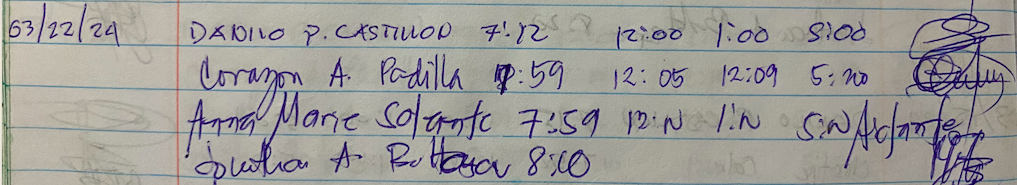 03/22/24 DANILO P. CASTILLOD 7:12 12:00 1:00 5:00
Corazon A. Padilla 7:59 12:05 12:09 5:20
Anna Marie Solante 7:59 12:N 1:N 5:N
A. 8:10